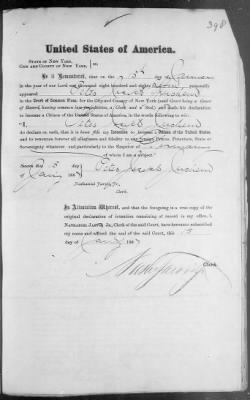 398
United States of America.
STATE OF NEW YORK,
CITY AND COUNTY OF NEW YORK, ss:
Be it Remembered, that on the 5th day of January
in the year of our Lord one thousand eight hundred and eighty personally
appeared Peter Jacob
in the Court of Common Pleas for the City and County of New York (said Court being a Court
of Record, having common law jurisdiction, a Clerk and a Seal) and made his Declaration
to become a Citizen of the United States of America, in the words following, to wit:
"I, Peter Jacob
do declare on oath, that it is bona fide my intention to become a Citizen of the United States
and to renounce forever all allegiance and fidelity to any foreign Prince, Potentate, State or
Sovereignty whatever, and particularly to the Emperor of Germany
of whom I am a subject."
Sworn this 5 day
of Jany 188 Peter Jacob
Nathaniel Jarvis, Jr.,
Clerk.
In Attestation Whereof, and that the foregoing is a true copy of the
original declaration of intention remaining of record in my office, I,
NATHANIEL JARVIS, Jr., Clerk of the said Court, have hereunto subscribed
my name and affixed the seal of the said Court, this 5
day of Jany 188
Clerk.